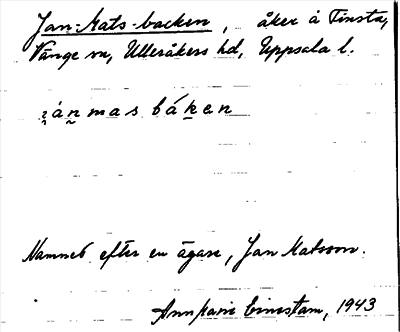 Jan-Mats-backen, åker å Finsta,
Vänge sn, Ulleråkers hd, Uppsala l.
i̯án̯masbák̯en
Namnet efter en ägare, Jan Matsson.
Annkarie Einestam, 1943